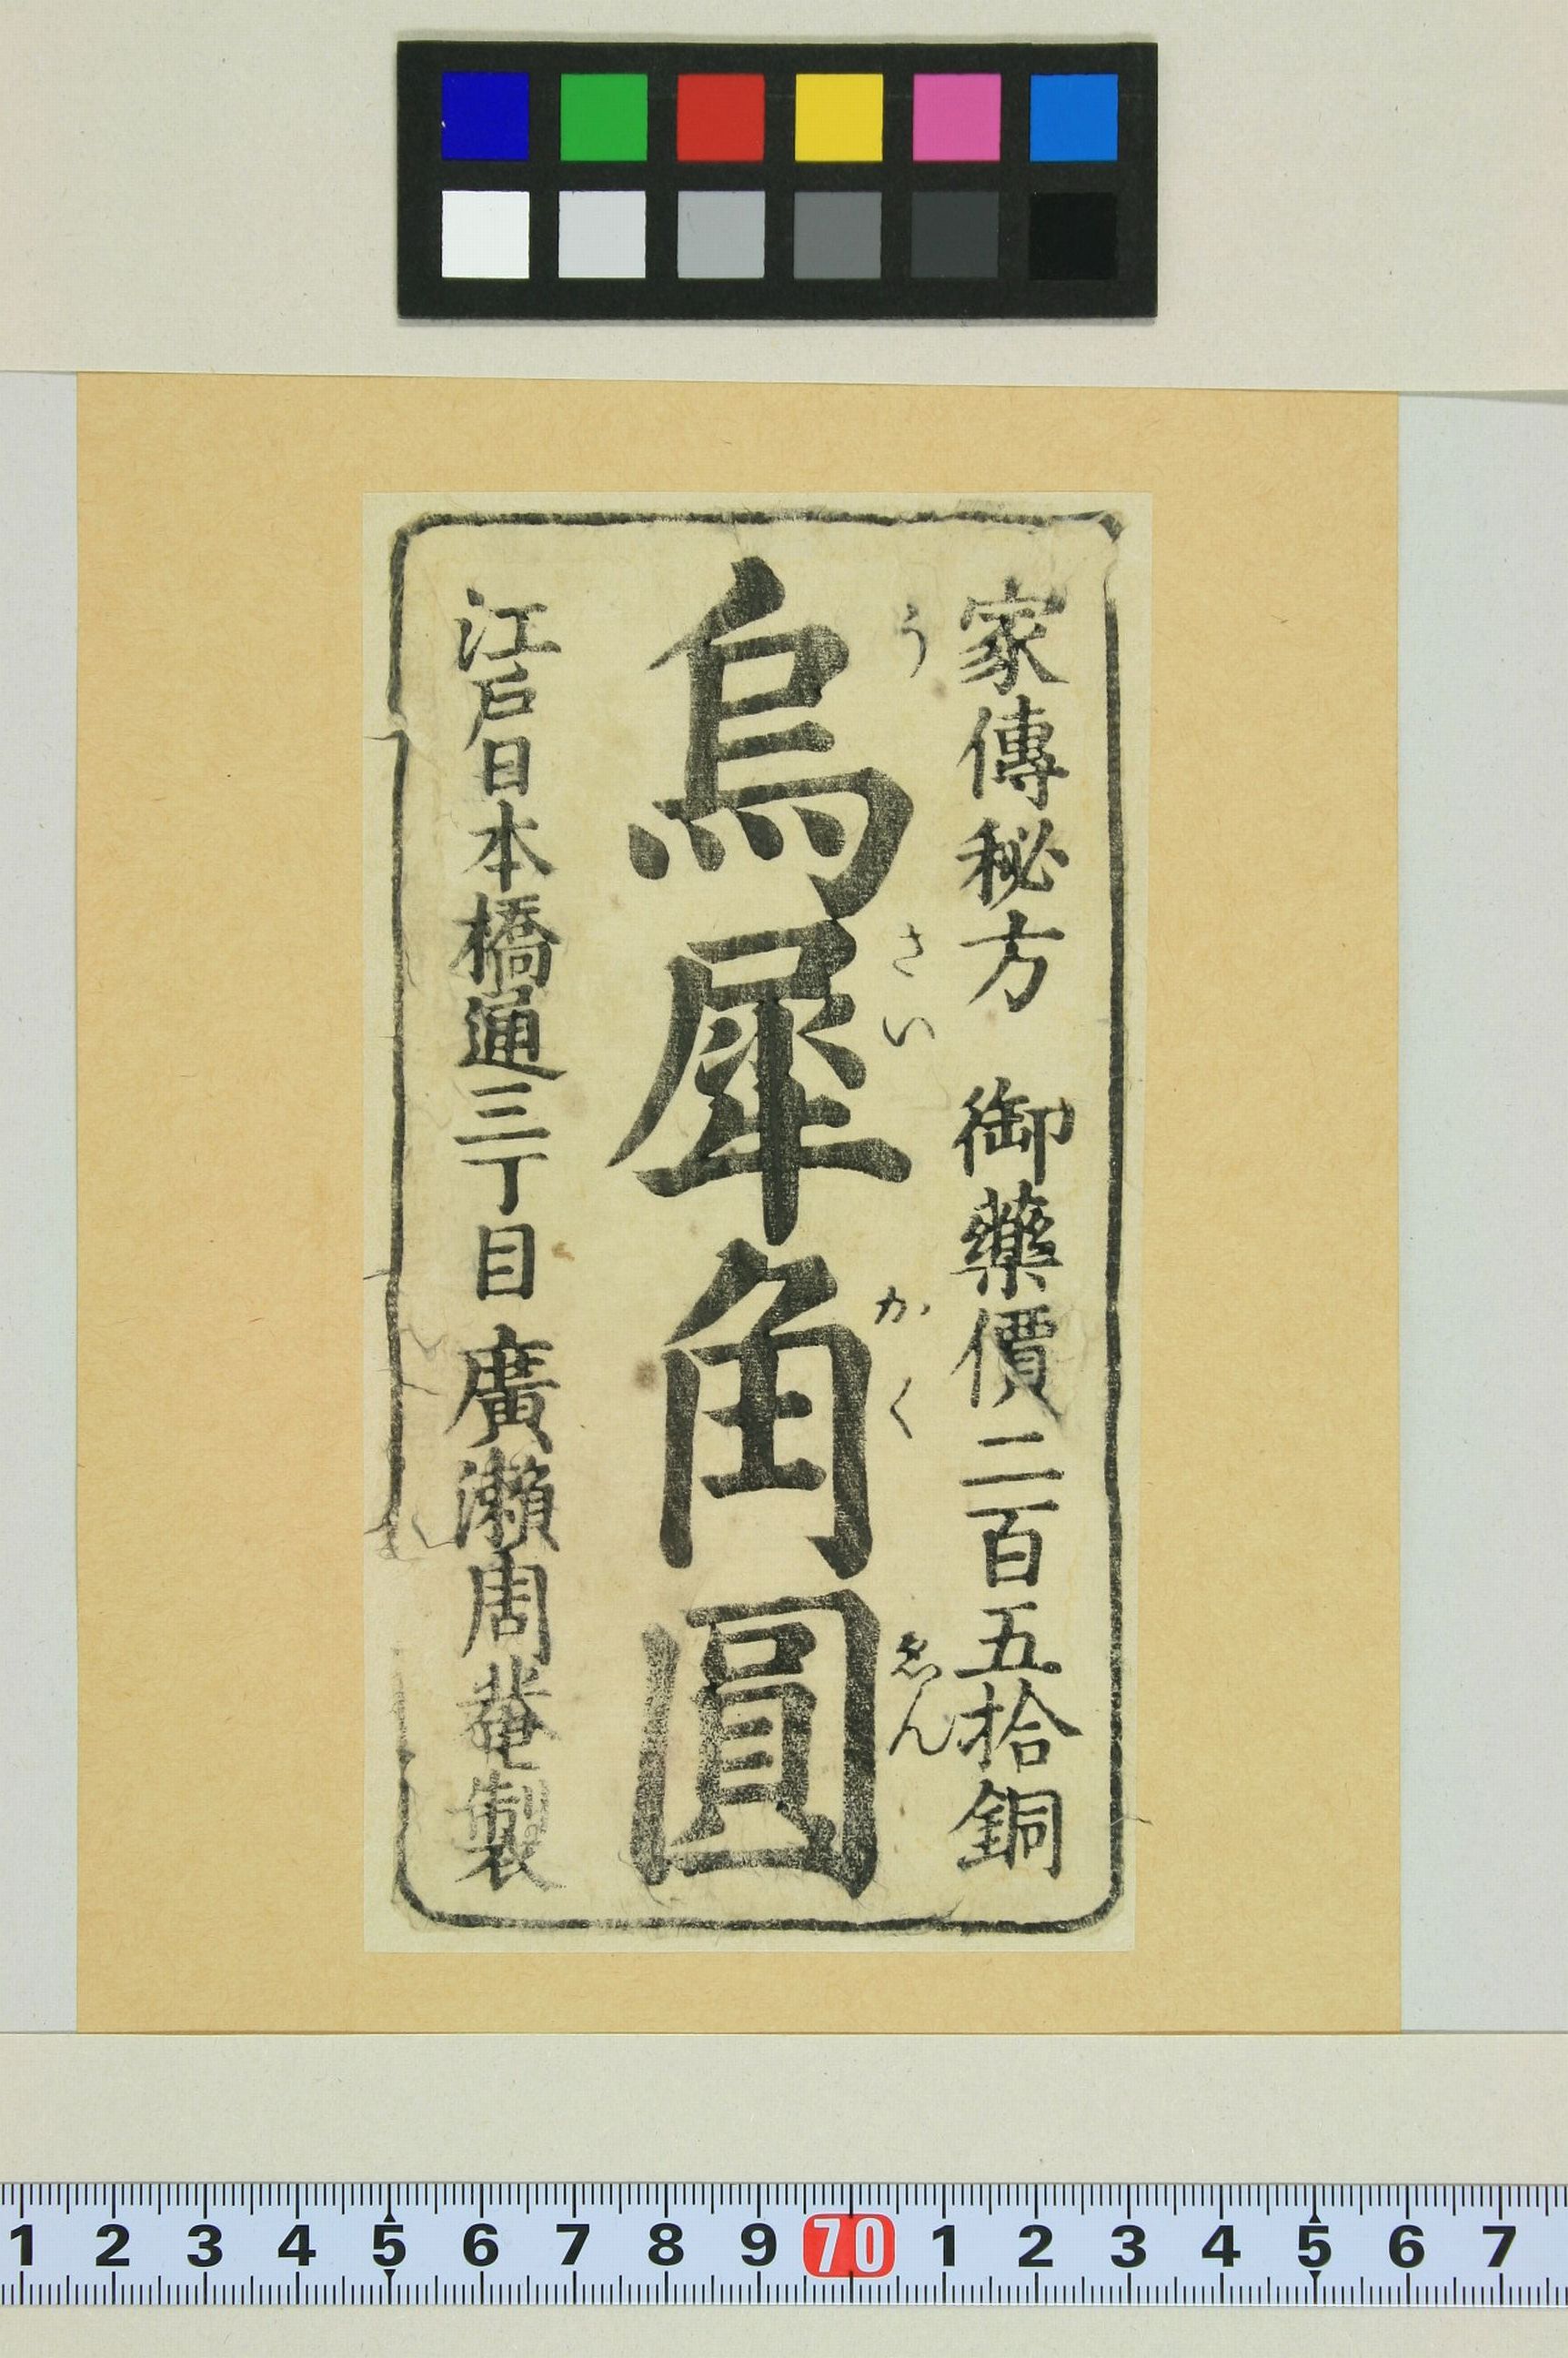 家傳秘方 御藥價二百五拾銅
烏犀角圓
うさいかくゑん
江戸日本橋通三丁目 廣瀬周菴製
1 2 3 4 5 6 7 8 9 70 1 2 3 4 5 6 7